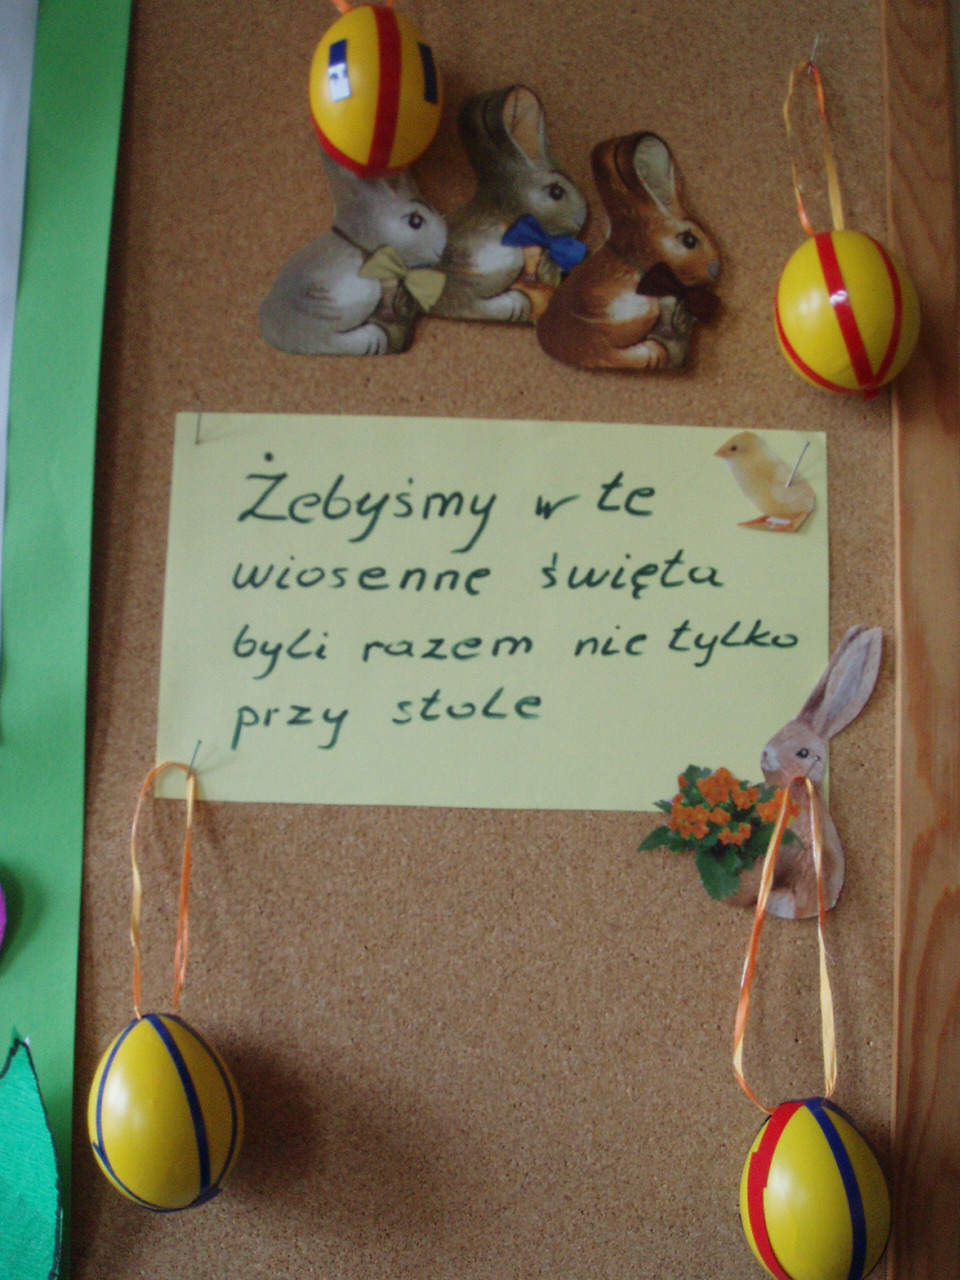 Żebyśmy w te
wiosenne święta
byli razem nie tylko
przy stole